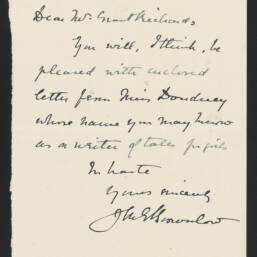 Dear Mr. Grant Richards,
You will, I think, be
pleased with enclosed
letter from Miss Doudney
whose name you may know
as a writer of tales for girls
In haste
Yours sincerely